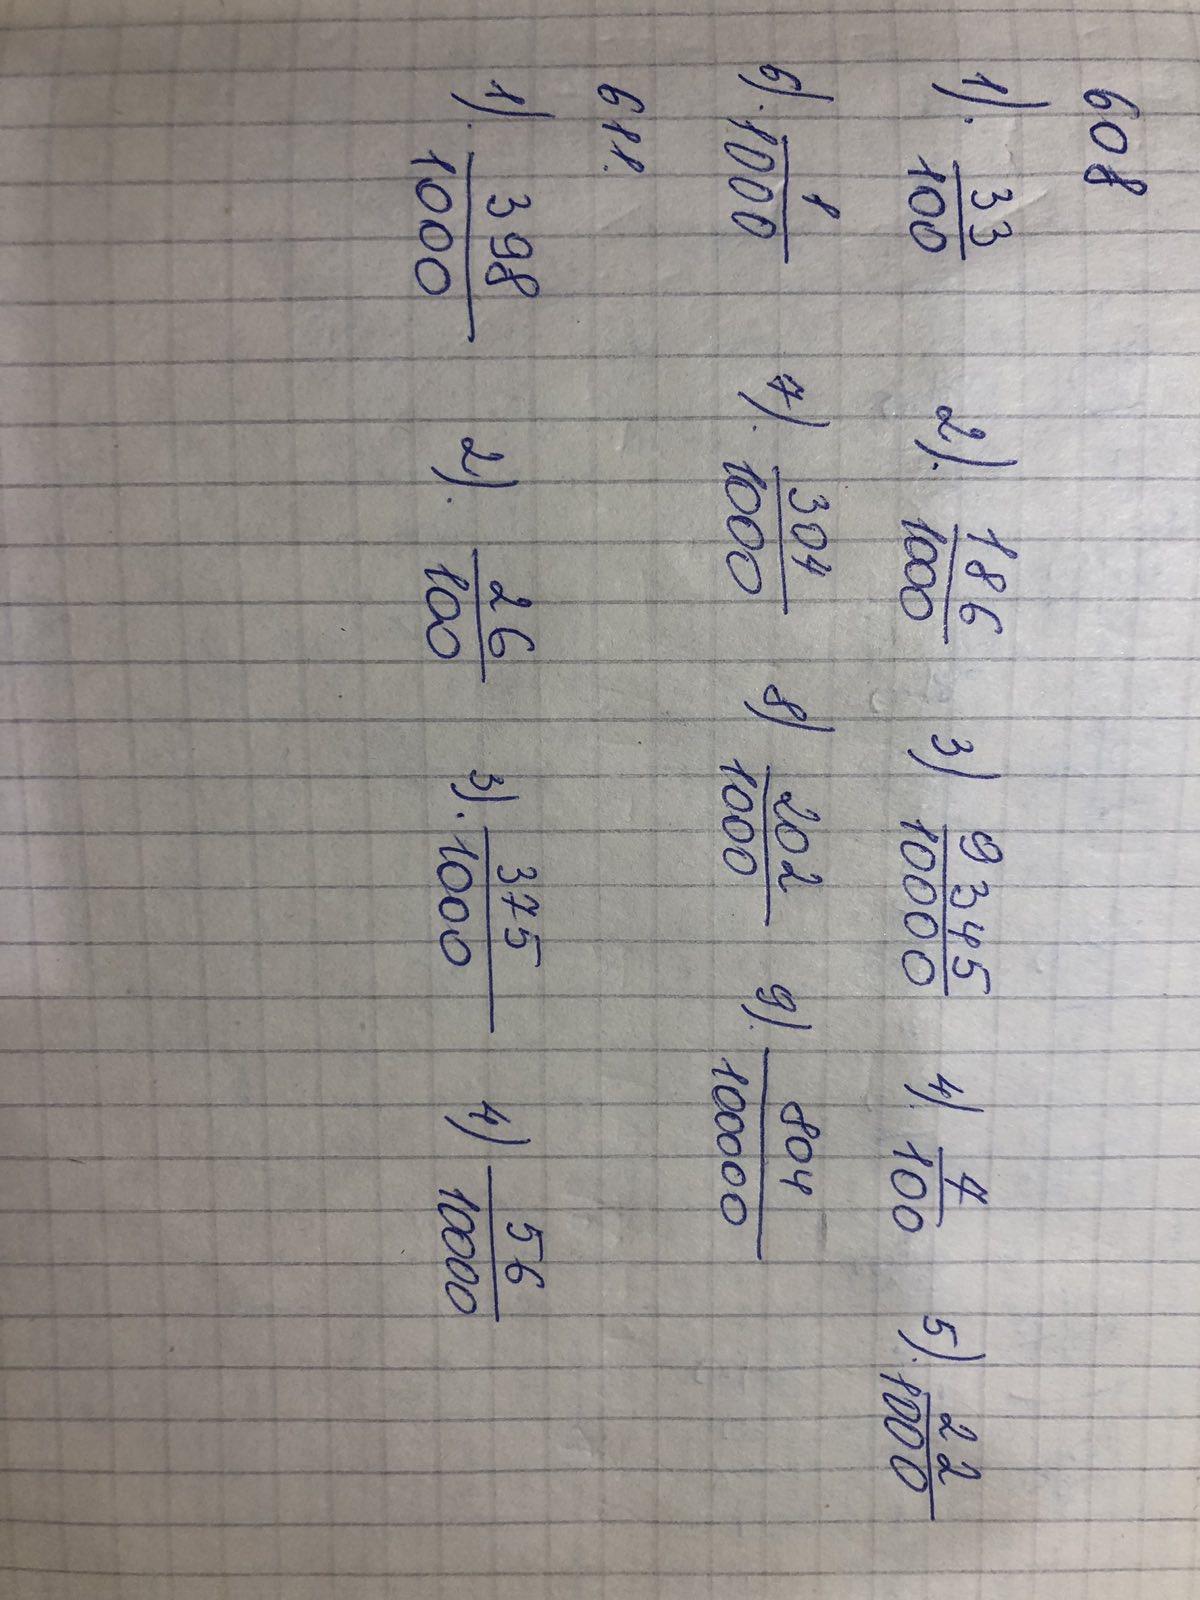 608
1). 33/100 2). 186/1000 3) 9345/10000 4). 7/100 5). 22/1000
6). 1/1000 7). 304/1000 8) 202/1000 9). 804/100000
611.
1). 398/1000 2). 26/100 3). 375/1000 4) 56/10000